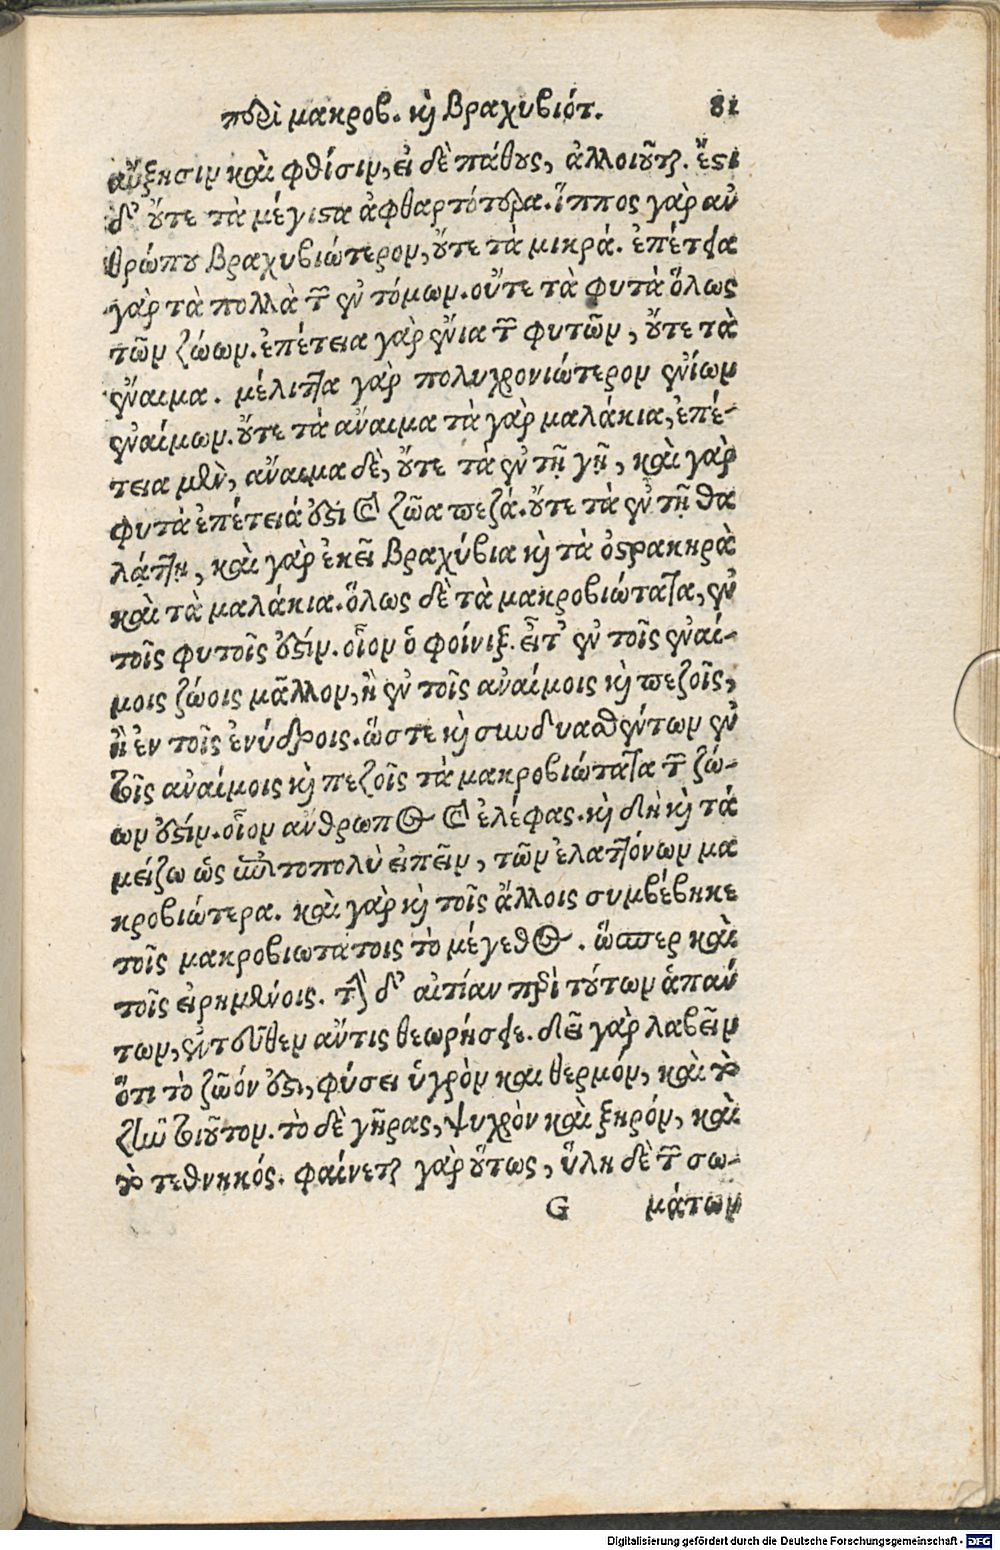 περὶ μακροβ. κỳ βραχυβιότ. 81
αὔξησιν καὶ φθίσιν, εἰ δὲ πάθους, ἀλλοιοῦται. ἔστι
δ' οὔτε τὰ μέγιστα ἀφθαρτότερα. ἵππος γὰρ ἀν
θρώπου βραχυβιώτερον, οὔτε τὰ μικρά. ἐπέτεια
γὰρ τὰ πολλὰ τῶν ἐντόμων. οὔτε τὰ φυτὰ ὅλως
τῶν ζώων. ἐπέτεια γὰρ ἔνια τῶν φυτῶν, οὔτε τὰ
ἔναιμα. μέλιττα γὰρ πολυχρονιώτερον ἐνίων
ἐναίμων. οὔτε τὰ ἄναιμα τὰ γὰρ μαλάκια, ἐπέ-
τεια μὲν, ἄναιμα δὲ, οὔτε τὰ ἐν τῇ γῇ, καὶ γὰρ
φυτὰ ἐπέτειά ἐστι καὶ ζῶα πεζά. οὔτε τὰ ἐν τῇ θα
λάττῃ, καὶ γὰρ ἐκεῖ βραχύβια καὶ τὰ ὀστρακηρὰ
καὶ τὰ μαλάκια. ὅλως δὲ τὰ μακροβιώτατα, ἐν
τοῖς φυτοῖς ἐστίν. οἷον ὁ φοίνιξ. εἶτ' ἐν τοῖς ἐναί-
μοις ζώοις μᾶλλον, ἢ ἐν τοῖς ἀναίμοις καὶ πεζοῖς,
ἢ ἐν τοῖς ἐνύδροις. ὥστε καὶ συνδυασθέντων ἐν
τοῖς ἀναίμοις καὶ πεζοῖς τὰ μακροβιώτατα τῶν ζώ-
ων ἐστίν. οἷον ἄνθρωπος καὶ ἐλέφας. καὶ δὴ καὶ τά
μείζω ὡς ἐπιτοπολὺ εἰπεῖν, τῶν ἐλαττόνων μα
κροβιώτερα. καὶ γὰρ καὶ τοῖς ἄλλοις συμβέβηκε
τοῖς μακροβιωτάτοις τὸ μέγεθος. ὥσπερ καὶ
τοῖς εἰρημένοις. τὴν δ' αἰτίαν περὶ τούτων ἁπάν
των, ἐντεῦθεν ἄν τις θεωρήσειε. δεῖ γὰρ λαβεῖν
ὅτι τὸ ζῶόν ἐστι, φύσει ὑγρὸν και θερμόν, καὶ τὸ
ζῆν τοιοῦτον. τὸ δὲ γῆρας, ψυχρὸν καὶ ξηρόν, καὶ
τὸ τεθνηκός. φαίνεται γὰρ οὕτως, ὕλη δὲ τῶν σω-
G μάτων
Digitalisierung gefördert durch die Deutsche Forschungsgemeinschaft - DFG